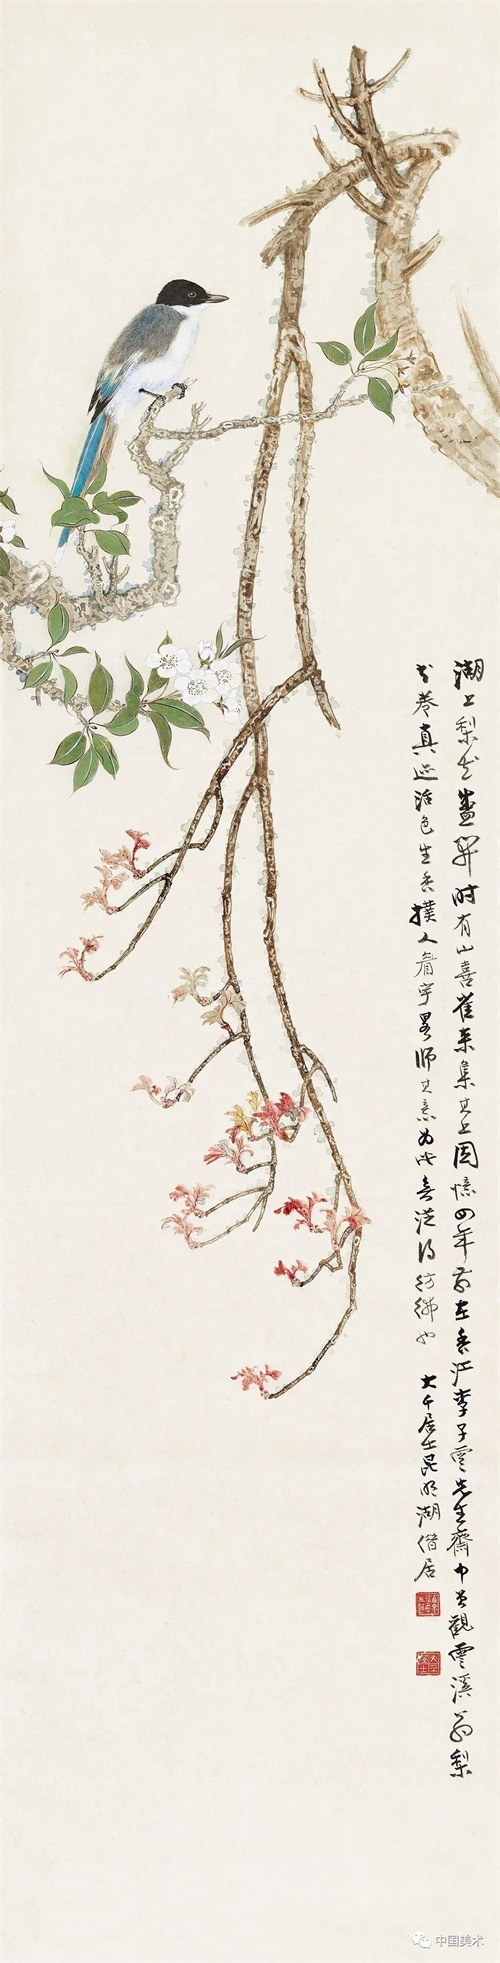 湖上梨花盛開時有山喜雀來集其上因憶四年前在香江李子雲先生齋中曾觀雲溪翁梨
花卷真迹活色生香撲人眉宇略師其意為此無從得彷彿也
大千居士昆明湖借居
大千居士
中国美术